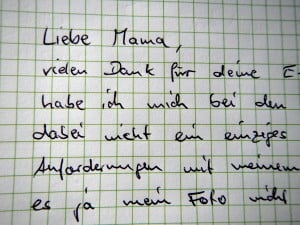 Liebe Mama,
vielen Dank für deine E-
habe ich mich bei den
dabei nicht ein einziges
Anforderungen mit meinem
es ja mein Foto nicht